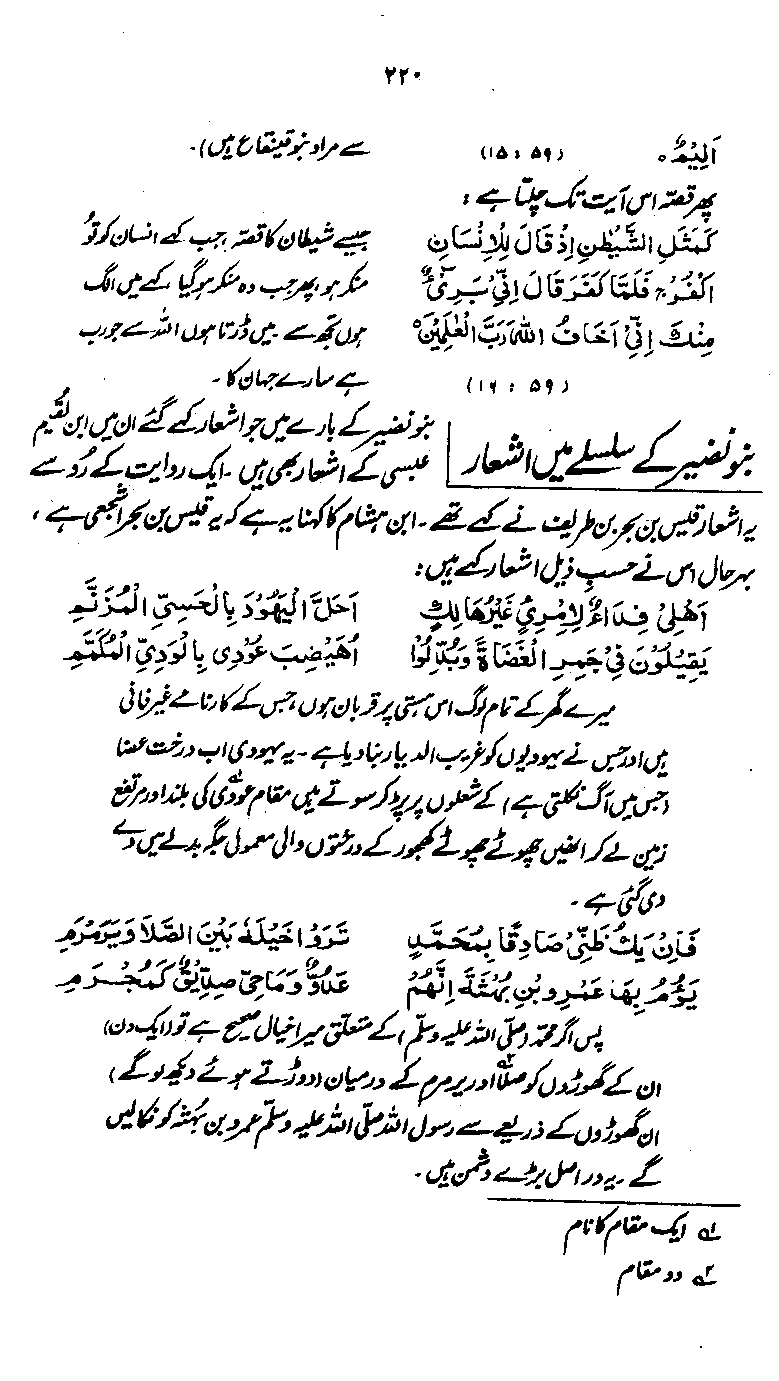 ۲۲۰
اَلِیْمٌ ۝ (۵۹ : ۱۵) سے مراد بنو قینقاع ہیں)۔
پھر قصّہ اس آیت تک چلتا ہے :
كَمَثَلِ الشَّيْطٰنِ اِذْ قَالَ لِلْاِنْسَانِ جیسے شیطان کا قصّہ، جب کہے انسان کو تُو
اكْفُرْ ۚ فَلَمَّا كَفَرَ قَالَ اِنِّىْ بَرِىْٓءٌ منکر ہو، پھر جب وہ منکر ہو گیا، کہے میں الگ
مِنْكَ اِنِّىْ اَخَافُ اللهَ رَبَّ الْعٰلَمِيْنَ ۝ ہوں تجھ سے، میں ڈرتا ہوں اللہ سے جو رب
(۵۹ : ۱۶) ہے سارے جہان کا۔
بنو نضیر کے سلسلے میں اشعار
بنو نضیر کے بارے میں جو اشعار کہے گئے ان میں ابن لُقَیم
عبسی کے اشعار بھی ہیں ۔ ایک روایت کے رُو سے
یہ اشعار قیس بن بحر بن طریف نے کہے تھے ۔ ابن ہشام کا کہنا یہ ہے کہ یہ قیس بن بحر اشجعی ہے ،
بہرحال اس نے حسبِ ذیل اشعار کہے ہیں :
اَهْلِىْ فِدَاءٌ لِامْرِىءٍ غَيْرِ هَالِكٍ اَحَلَّ الْيَهُوْدَ بِالْحَسِيِّ الْمُزَنَّمِ
يَقِيْلُوْنَ فِىْ جَمْرِ الْغَضَاةِ وَبُدِّلُوْا اُهَيْضِبَ عُوْدٰى بِالْوَدِيِّ الْمُكَمَّمِ
میرے گھر کے تمام لوگ اس ہستی پر قربان ہوں، جس کے کارنامے غیر فانی
ہیں اور جس نے یہودیوں کو غریب الدیار بنا دیا ہے ۔ یہ یہودی اب درخت غضا
(جس میں آگ نکلتی ہے) کے شعلوں پر پڑ کر سوتے ہیں مقام عودٰی۱؎ کی بلند اور مرتفع
زمین لے کر انھیں چھوٹے چھوٹے کھجور کے درختوں والی معمولی جگہ بدلے میں دے
دی گئی ہے ۔
فَاِنْ يَكُ ظَنِّىْ صَادِقًا بِمُحَمَّدٍ تَرَوْا خَيْلَهٗ بَيْنَ الصَّلَا وَيَرَمْرَمِ
يَؤُمُّ بِهَا عَمْرَو بْنَ بُهْثَةَ اِنَّهُمْ عَدُوٌّ وَمَا حَىٌّ صَدِيْقٌ كَمُجْرِمِ
پس اگر محمّد (صلّی اللہ علیہ وسلّم) کے متعلق میرا خیال صحیح ہے تو (ایک دن)
ان کے گھوڑوں کو صلا۲؎ اور یرمرم کے درمیان (دوڑتے ہوئے دیکھ لو گے)
ان گھوڑوں کے ذریعے سے رسول اللہ صلّی اللہ علیہ وسلّم عمرو بن بہثہ کو نکالیں
گے ۔ یہ دراصل بڑے دشمن ہیں ۔
۱؎ ایک مقام کا نام
۲؎ دو مقام